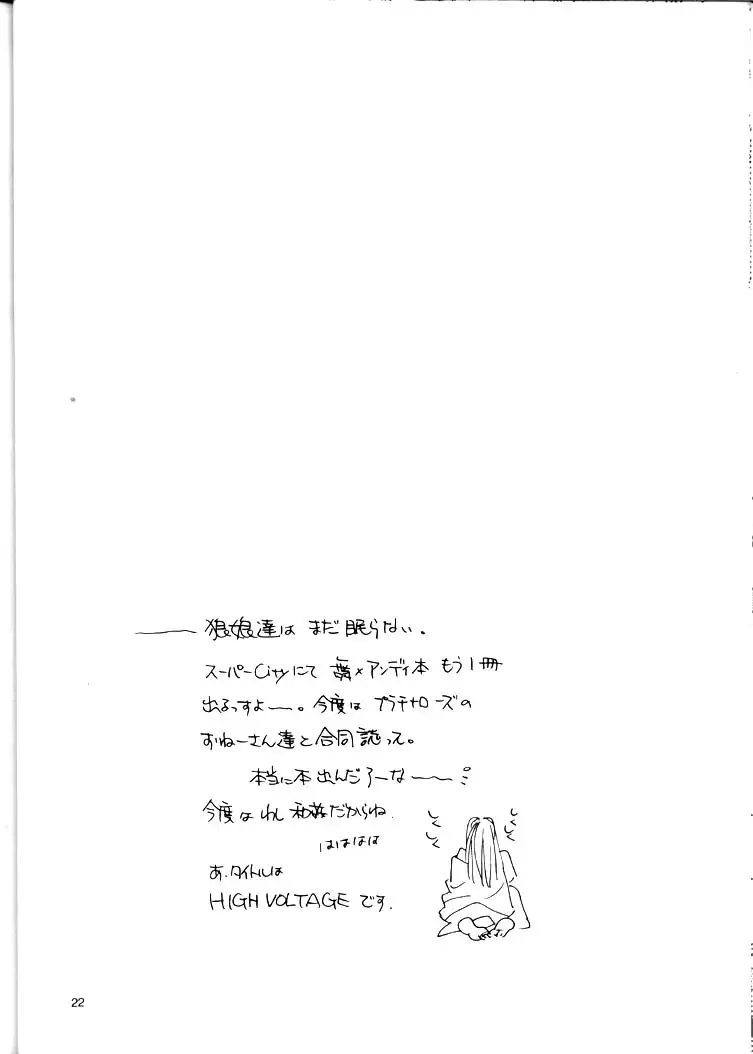 狼娘達は まだ眠らない。
スーパーCityにて ×アンディ本 もう1冊
出るっすよー。今度は プラチナローズの
おねーさん達と合同誌って。
本当に本出んだろーなー――
今度は わし だからね.
はははは
あ.タイトルは
HIGH VOLTAGE です.
しくしく
しくしく
22